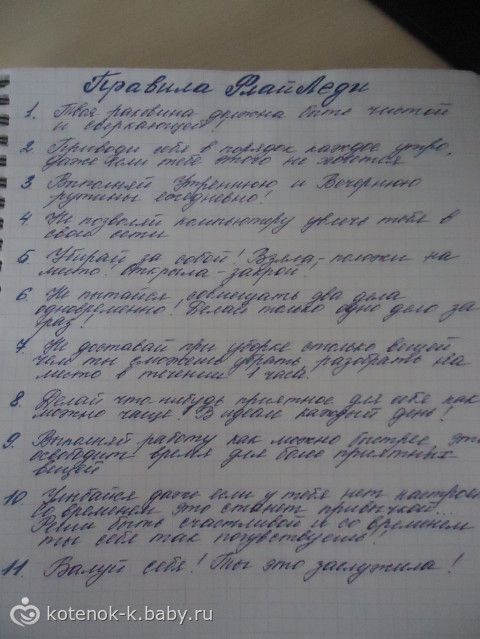 Правила ФлайЛеди
1. Твоя раковина должна быть чистой
и сверкающей!
2 Приводи себя в порядок каждое утро,
даже если тебе этого не хочется
3 Выполняй Утреннюю и Вечернюю
рутины ежедневно!
4 Не позволяй компьютеру увлечь тебя в
свои сети
5 Убирай за собой! Взяла, - положи на
место! Открыла - закрой!
6. Не пытайся совмещать два дела
одновременно! Делай только одно дело за
раз!
7. Не доставай при уборке столько вещей
чем ты сможешь убрать, разобрать на
место в течении 1 часа.
8. Делай что-нибудь приятное для себя как
можно чаще. В идеале каждый день!
9. Выполняй работу как можно быстрее, это
освободит время для более приятных
вещей
10. Улыбайся даже если у тебя нет настроен
Со временем это станет привычкой...
Реши быть счастливой и со временем
ты себя так почувствуешь!
11. Балуй себя! Ты это заслужила!
kotenok-k.baby.ru